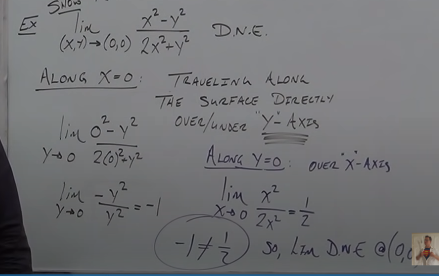 SHOW
Ex lim (x,y)→(0,0) x²-y² / 2x²+y² D.N.E.
ALONG X=0: TRAVELING ALONG
THE SURFACE DIRECTLY
OVER/UNDER "Y"-AXIS
lim y→0 0²-y² / 2(0)²+y²
lim y→0 -y² / y² = -1
ALONG Y=0: OVER "X"-AXIS
lim x→0 x² / 2x² = 1/2
-1 ≠ 1/2 SO, LIM D.N.E @ (0,0